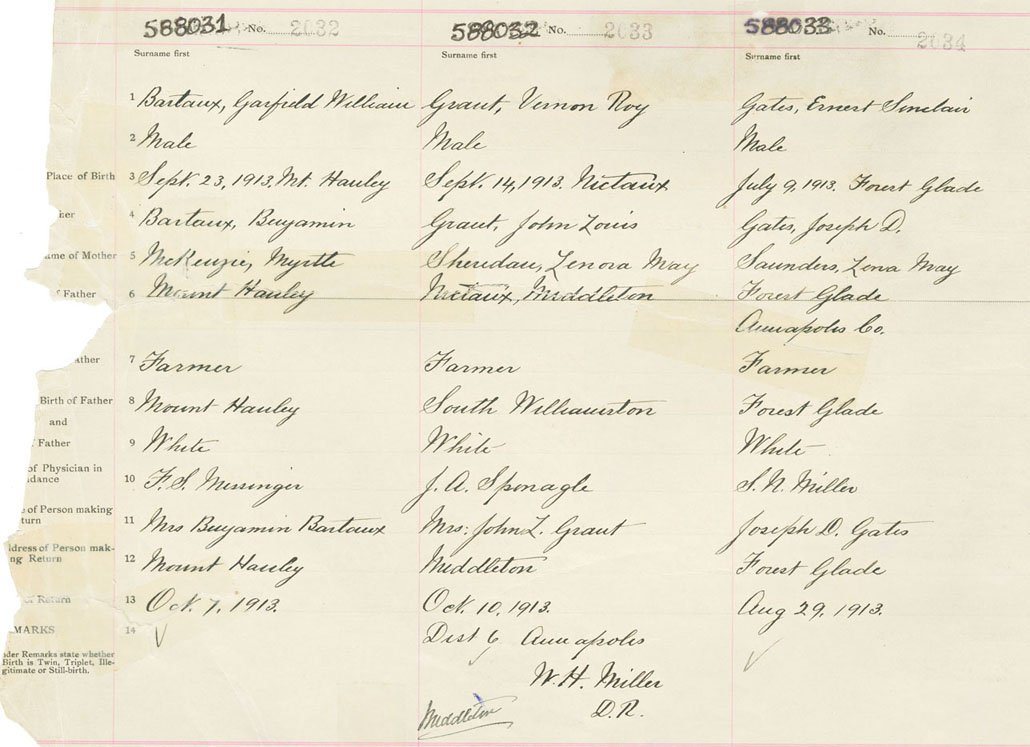 588031 No. 2032 588032 No. 2033 588033 No. 2034
Surname first Surname first Surname first
1 Bartaux, Garfield William Grant, Vernon Roy Gates, Ernest Sinclair
2 Male Male Male
Place of Birth 3 Sept. 23, 1913, Mt. Hanley Sept. 14, 1913. Nictaux July 9, 1913. Forest Glade
4 Bartaux, Benjamin Grant, John Louis Gates, Joseph D.
me of Mother 5 McKenzie, Myrtle Sheredan, Lenora May Saunders, Lena May
Father 6 Mount Hanley Nictaux, Middleton Forest Glade
Annapolis Co.
ather 7 Farmer Farmer Farmer
Birth of Father 8 Mount Hanley South Williamston Forest Glade
and
Father 9 White White White
of Physician in
dance 10 F. S. Messinger J. A. Sponagle S. N. Miller
of Person making
turn 11 Mrs Benjamin Bartaux Mrs: John L. Grant Joseph D. Gates
ddress of Person mak-
ng Return 12 Mount Hanley Middleton Forest Glade
of Return 13 Oct. 7, 1913. Oct. 10, 1913. Aug 29, 1913.
MARKS 14 Dist 6 Annapolis
der Remarks state whether
Birth is Twin, Triplet, Ille-
gitimate or Still-birth.
W. H. Miller
D. R.
Middleton